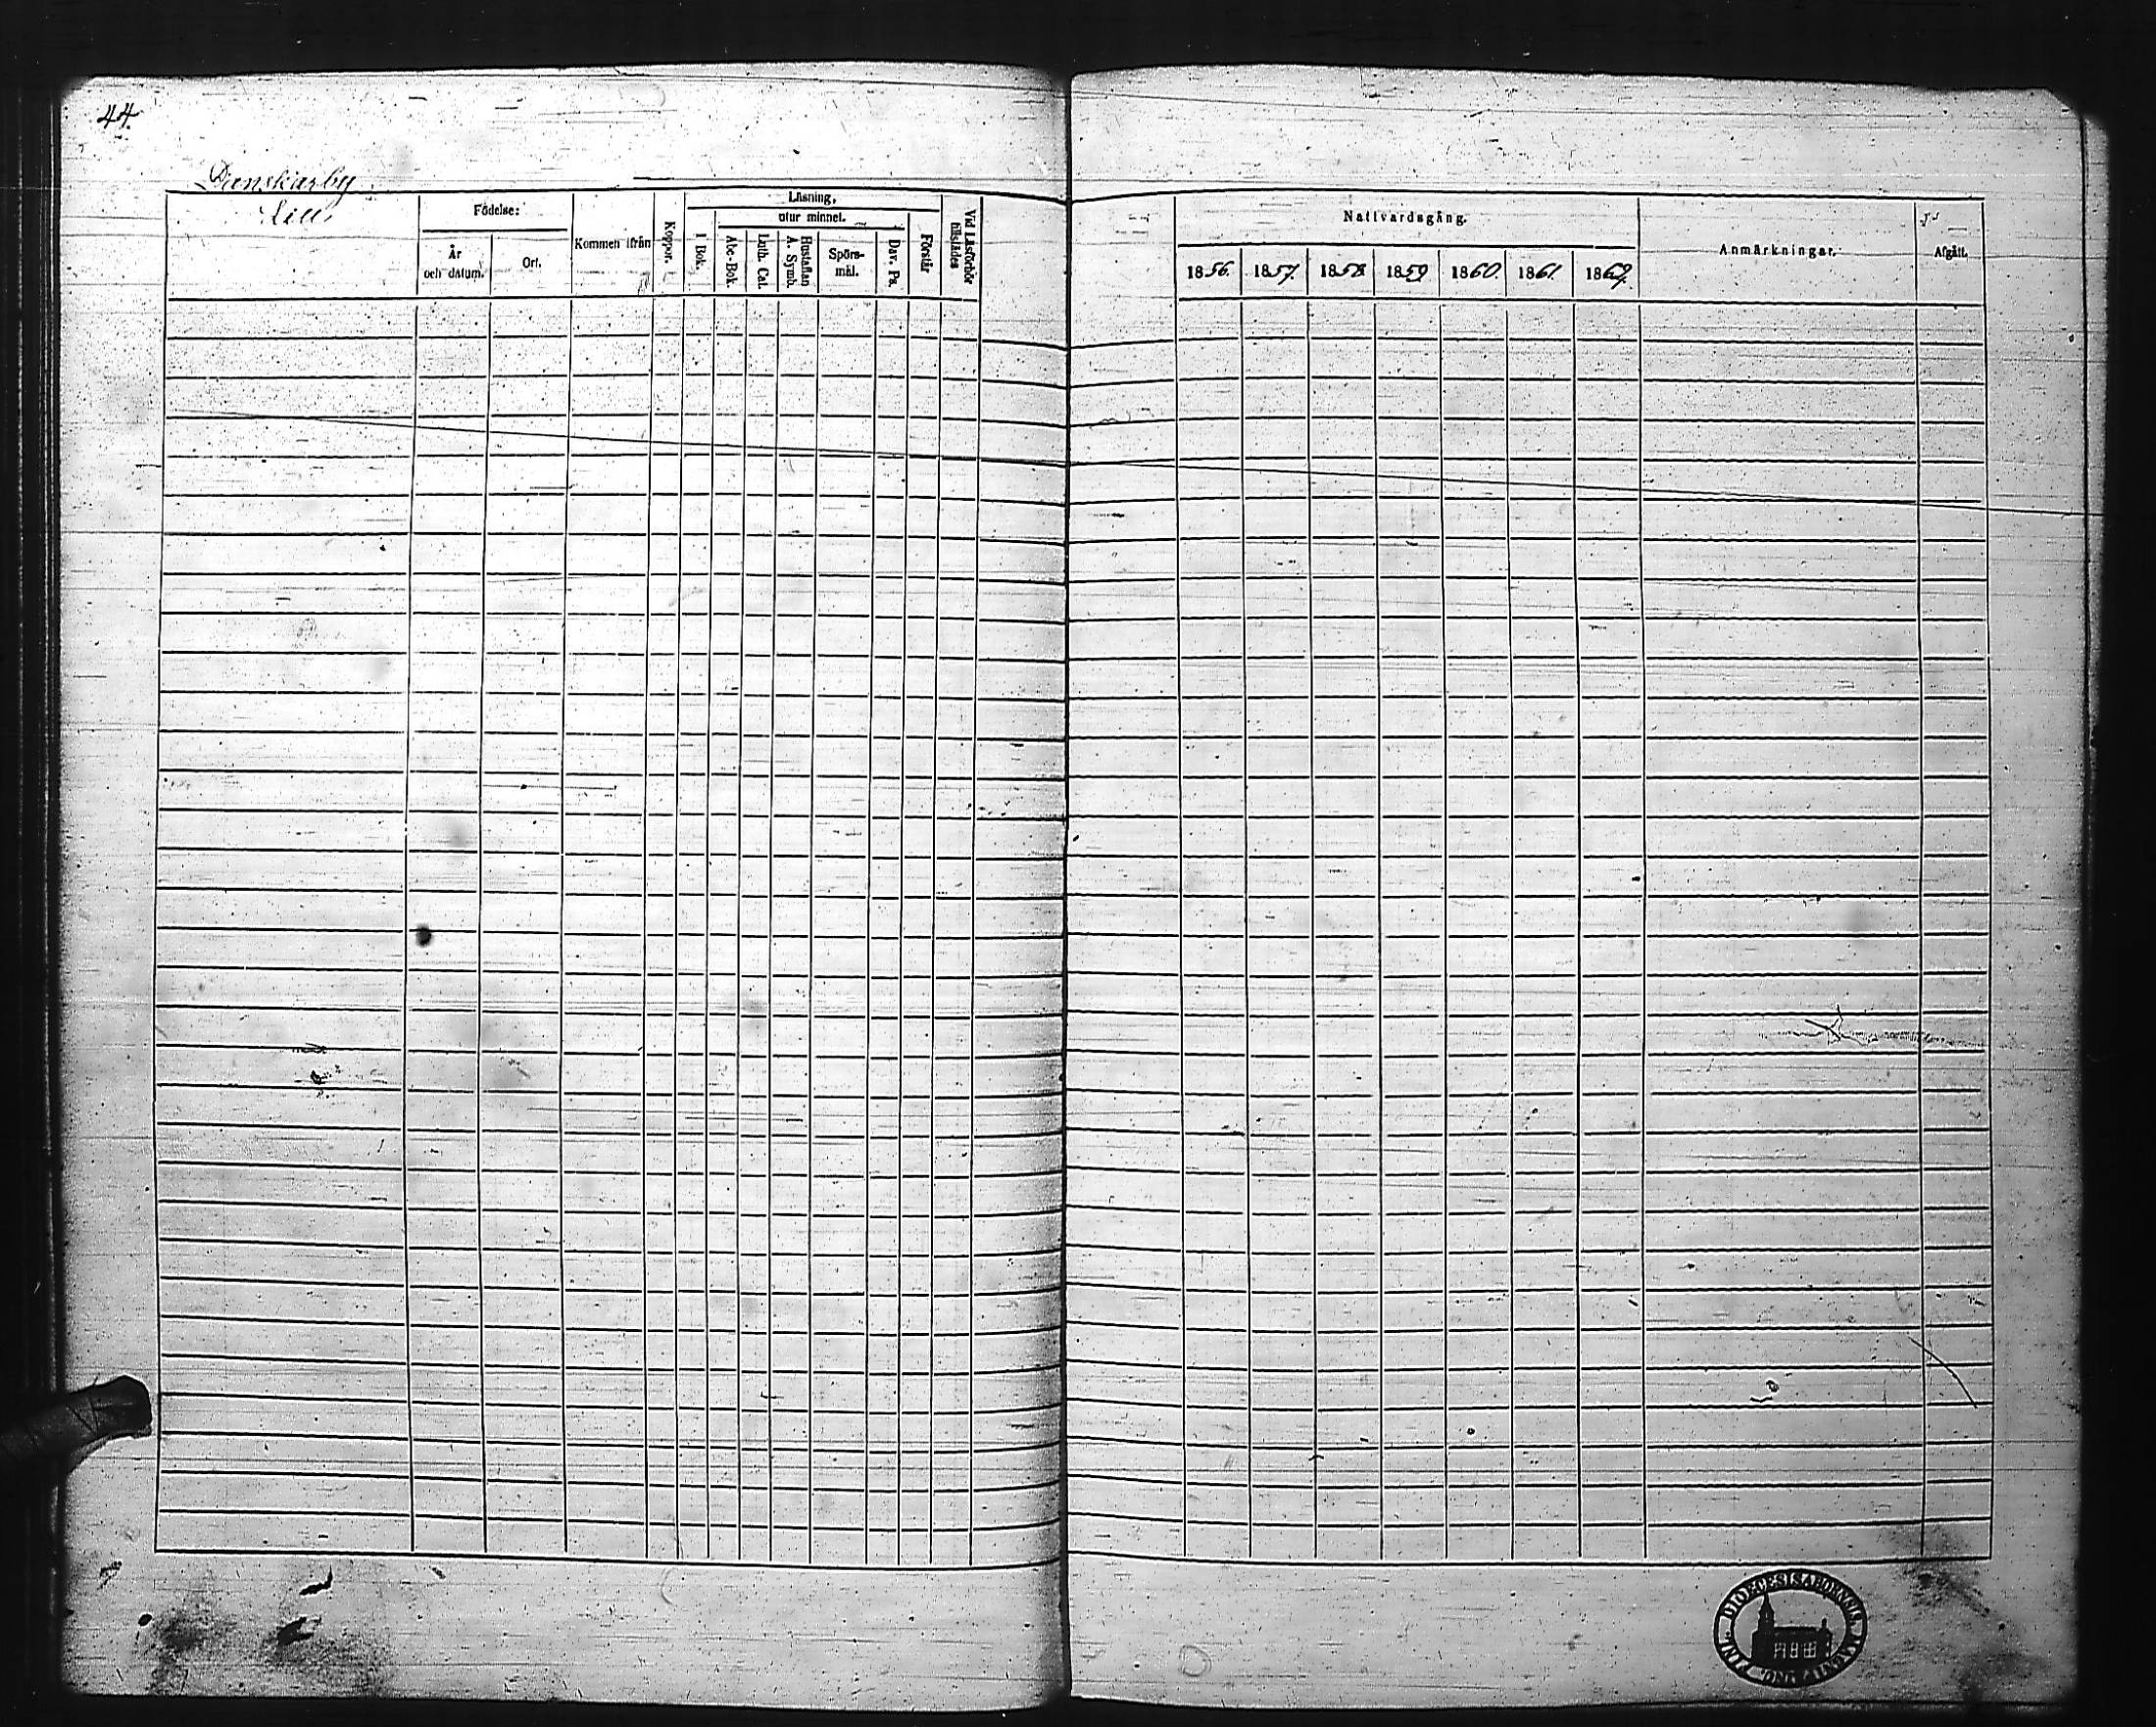 44
Danskarby
Lill
Födelse:
År
och datum.
Ort.
Kommen ifrån
Koppor.
Läsning,
utur minnet.
I Bok.
Abc-Bok.
Luth. Cat.
Hustaflan
A. Symb.
Spörs-
mål.
Dav. Ps.
Förstår
Vid Läsförhör
tillstädes
Nattvardsgång.
1856. 1857. 1858 1859 1860. 1861. 1862.
Anmärkningar.
Afgått.